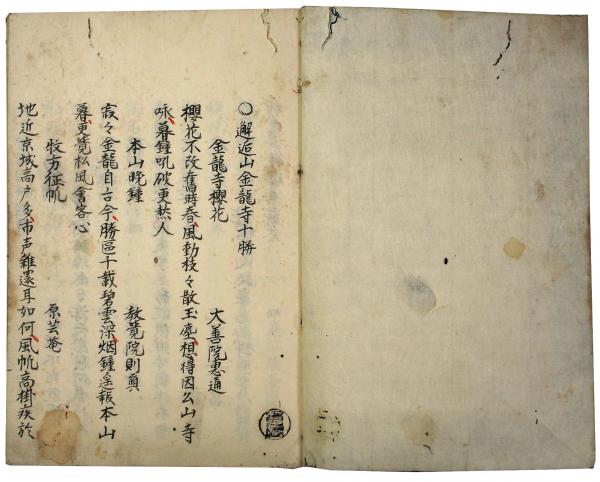 ○邂逅山金龍寺十勝
金龍寺櫻花 大善院惠通
櫻花不改舊時春風動枝々散玉塵想得因公山寺
咏暮鐘吼破更愁人
本山晚鐘 教覚院則真
寂々金龍自古今勝區千載碧雲深烟鐘遥報本山
暮更覚松風會客心
牧方征帆 原芸菴
地近京城高戸多市声雜還耳如何風帆高掛疾於